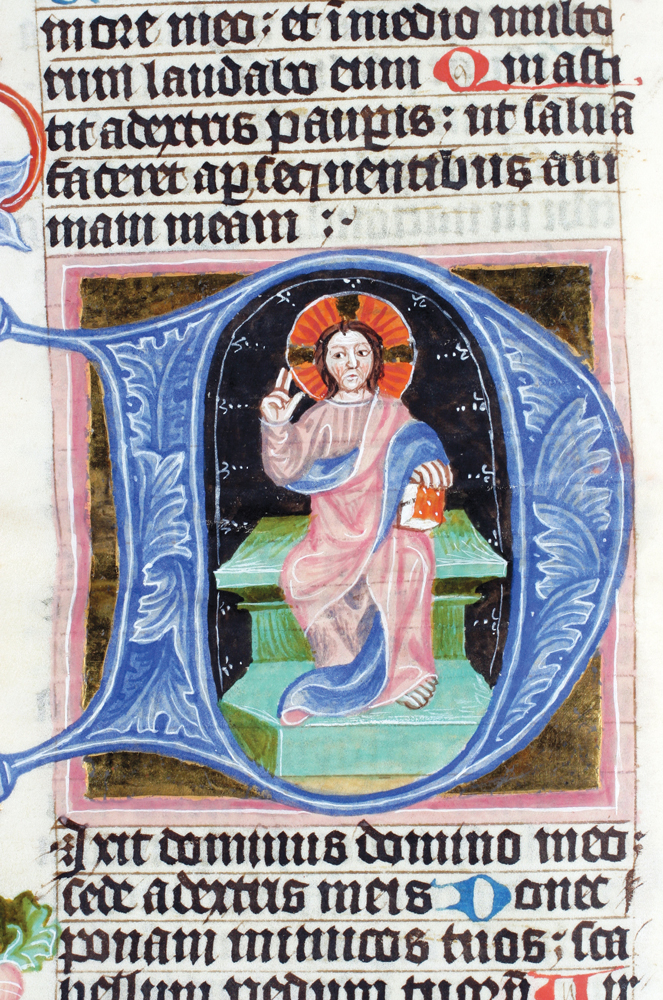 more meo: et i medio multo
rum laudabo eum Quia asti
tit a dextris paupis: ut saluā
faceret a psequentibus ani
mam meam :·
D
Ixit dominus domino meo:
sede a dextris meis Donec
ponam inimicos tuos: sca
bellum pedum tuoꝝ Uir